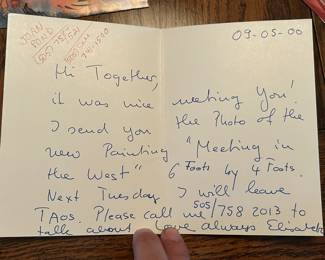 JOAN
POND
505/751
09-05-00
Hi Together,
it was nice meeting You!
I send you the Photo of the
new Painting "Meeting in
the West" 6 Foots by 4 Foots.
Next Tuesday I will leave
TAOS. Please call me 505/758 2013 to
talk about Love always Elisabeth